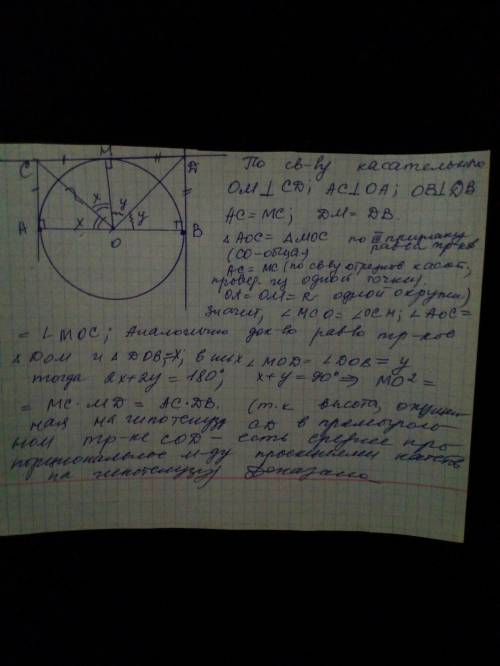 M
C
D
x y
x y
A
O
B
По св-ву касательно
OM⊥CD; AC⊥OA; OB⊥DB
AC=MC; DM=DB.
△AOC=△MOC по III признаку рав-ва тр-ков
(CO-общая
AC=MC (по св-ву отрезков касат.,
провед. из одной точки).
OA=OM=R одной окружн)
Значит, ∠MCO=∠OCM; ∠AOC=
=∠MOC; Аналогично док-во рав-во тр-ков
△DOM и △DOB, в них ∠MOD=∠DOB=y
тогда 2x+2y=180°, x+y=90° ⇒ MO²=
= MC·MD = AC·DB. (т.к высота, опущен
ная на гипотенузу CD в прямоуголь
ном тр-ке COD - есть среднее про
порциональное м-ду проекциями катетов
на гипотенузу Доказано